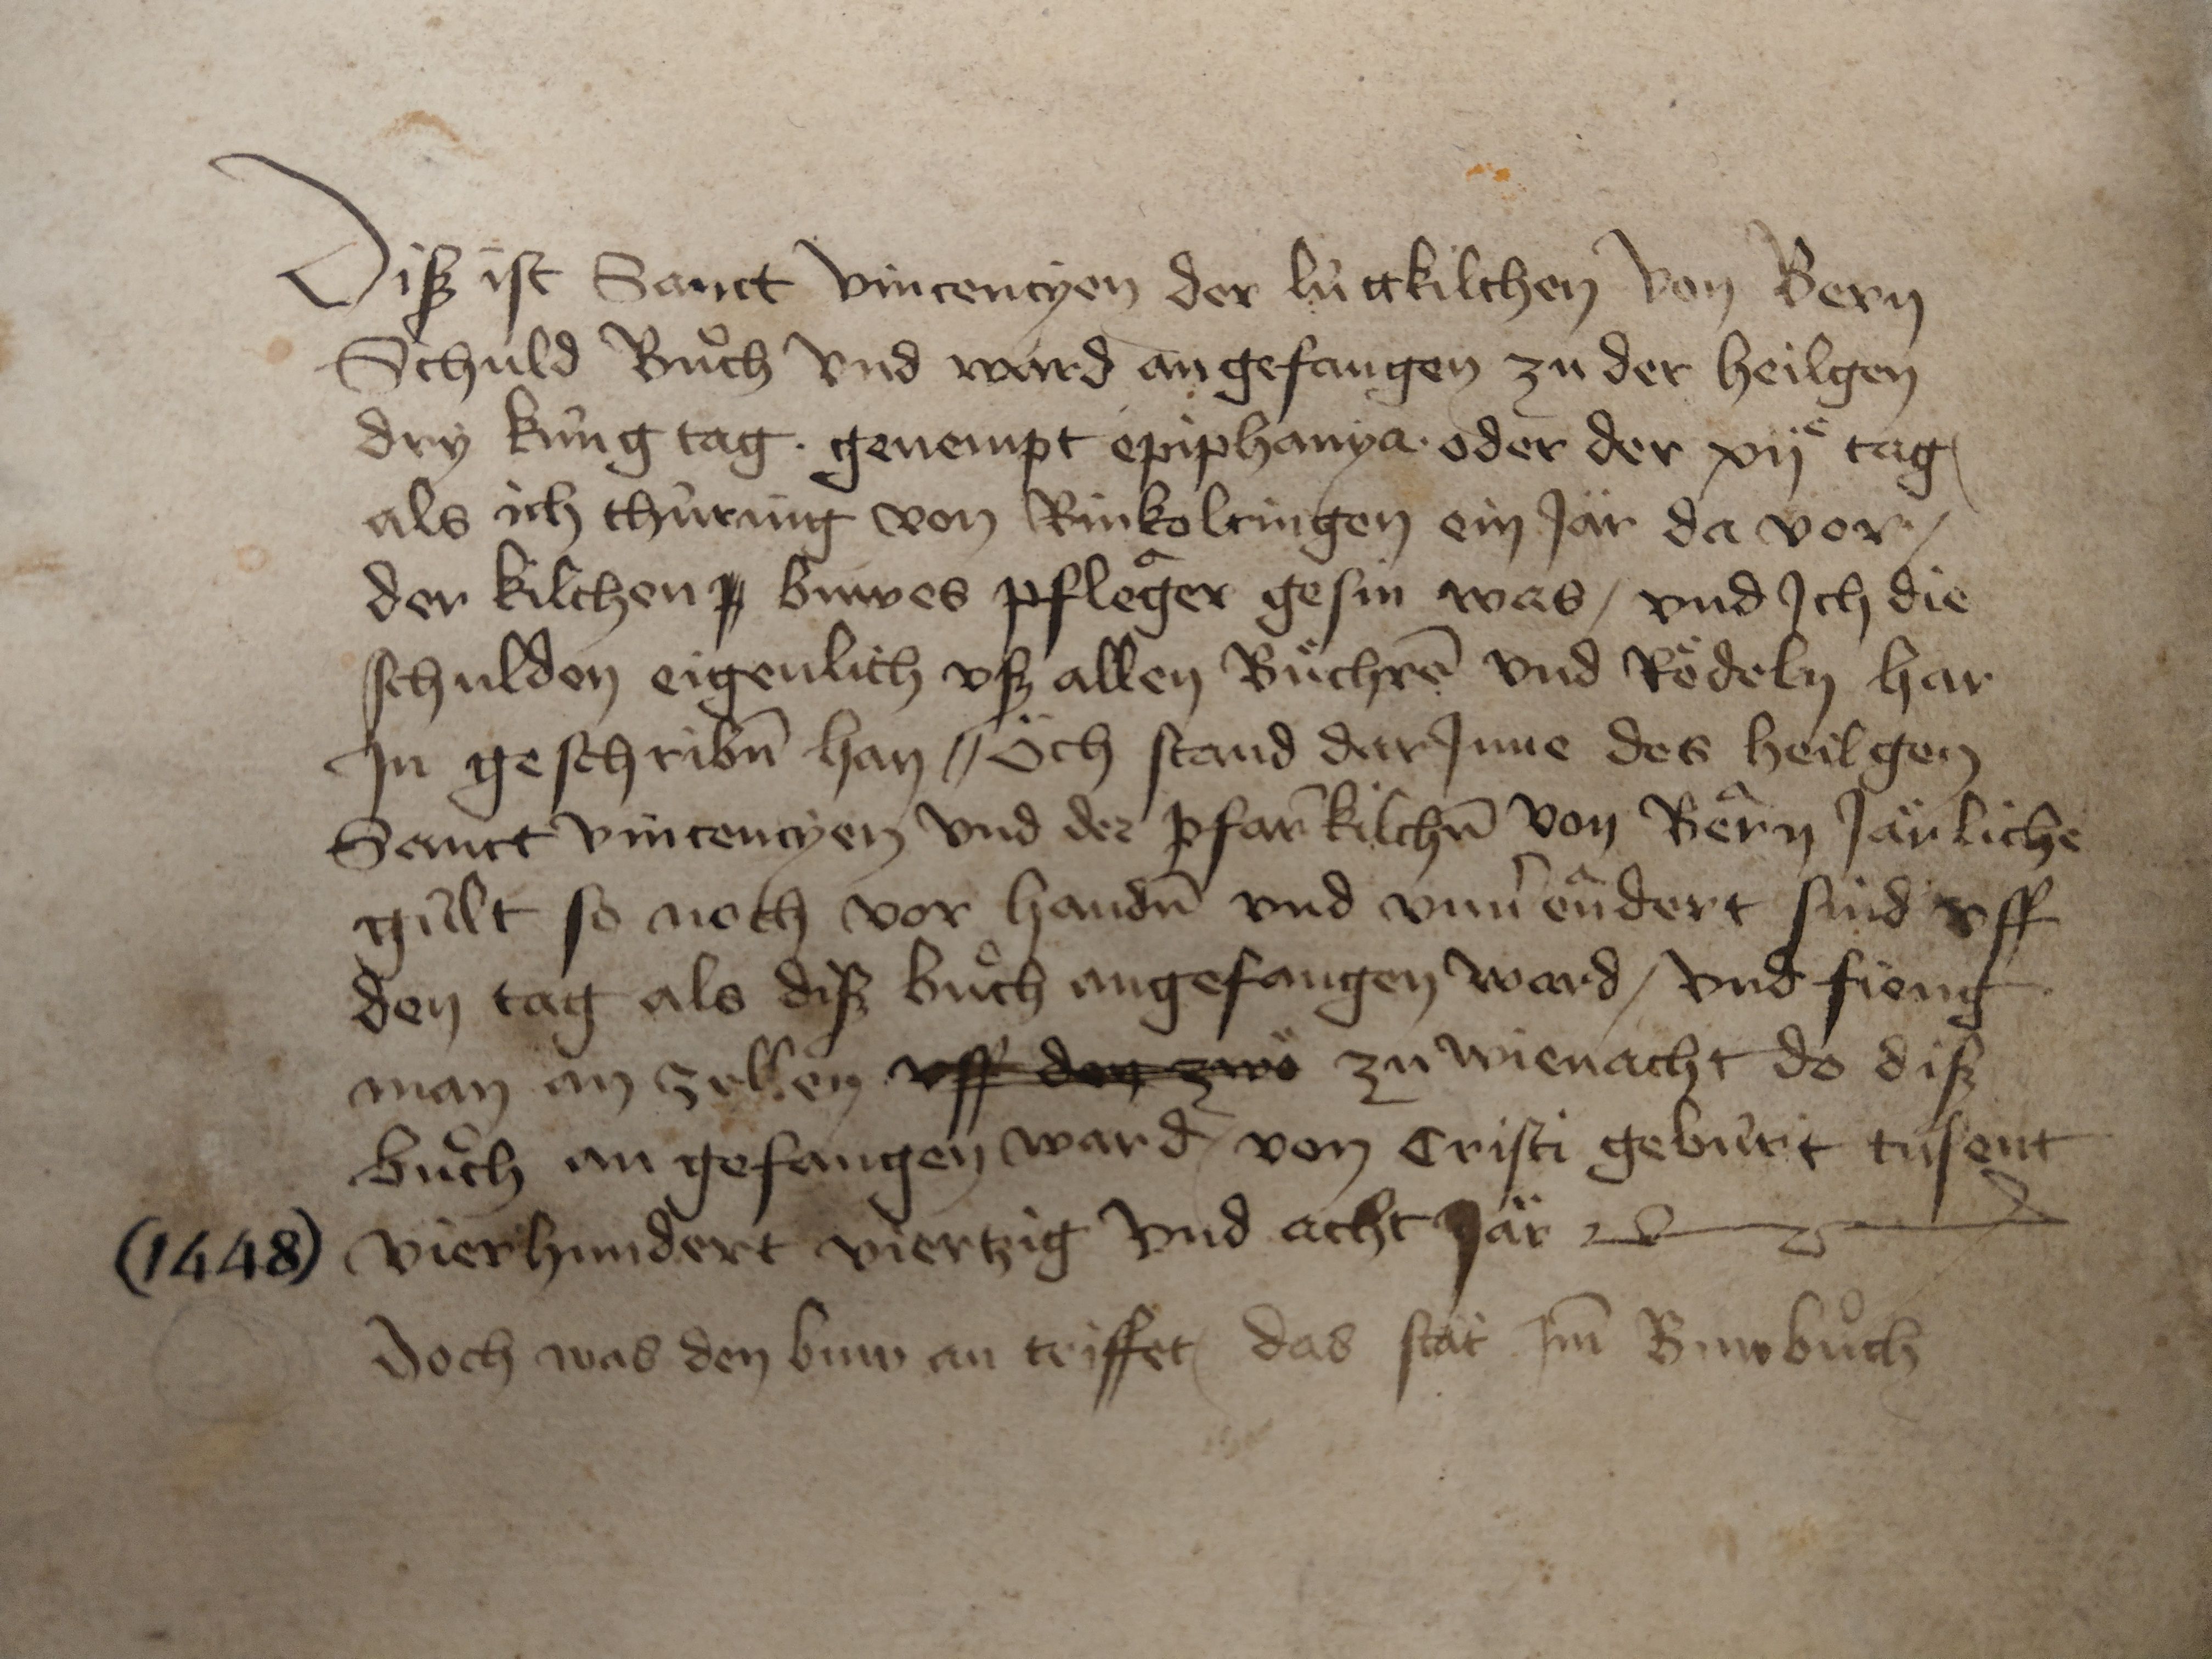 Diß ist Sanct vincencyen der lútkilchen von Bern
Schuld Bůch vnd ward angefangen zu der heilgen
dry kúng tag · genempt epiphanya · oder der xijͤ tag /
als ich thúring von Rinkoltingen ein Jär da vor /
der kilchen buwes pflegͣer gesin was / vnd Jch die
schulden eigenlich vß allen Bůchrē vnd Rödeln har
Jn geschribn̄ han // Öch stand dar Jnne des heilgen
Sanct vincencyen vnd der pfarrkilchn̄ von Bern Järliche
gúlt so noch vor handn̄ vnd sind vff
den tag als diß bůch angefangen ward / vnd fieng
man an zellen vff den zwö zu wienacht do diß
bůch an gefangen ward / von Cristi gebúrt tusent
(1448) vierhundert viertzig vnd acht Jär
Doch was den buw an triffet / das stät Jm̄ Buwbůch